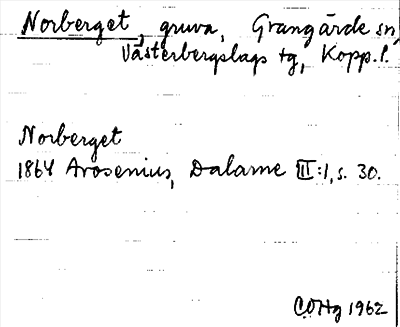 Norberget, gruva, Grangärde sn,
Västerbergslags tg, Kopp. l.
Norberget
1864 Arosenius, Dalarne III:1, s. 30.
COHg 1962